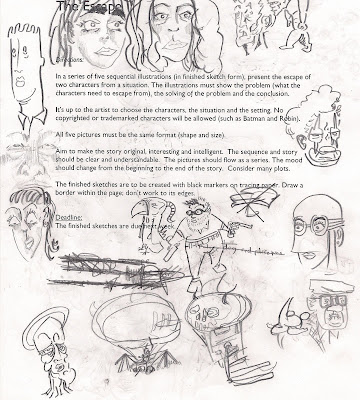 The Escape
Directions:
In a series of five sequential illustrations (in finished sketch form), present the escape of
two characters from a situation. The illustrations must show the problem (what the
characters need to escape from), the solving of the problem and the conclusion.
It's up to the artist to choose the characters, the situation and the setting. No
copyrighted or trademarked characters will be allowed (such as Batman and Robin).
All five pictures must be the same format (shape and size).
Aim to make the story original, interesting and intelligent. The sequence and story
should be clear and understandable. The pictures should flow as a series. The mood
should change from the beginning to the end of the story. Consider many plots.
The finished sketches are to be created with black markers on tracing paper. Draw a
border within the page; don't work to its edges.
Deadline:
The finished sketches are due next week.